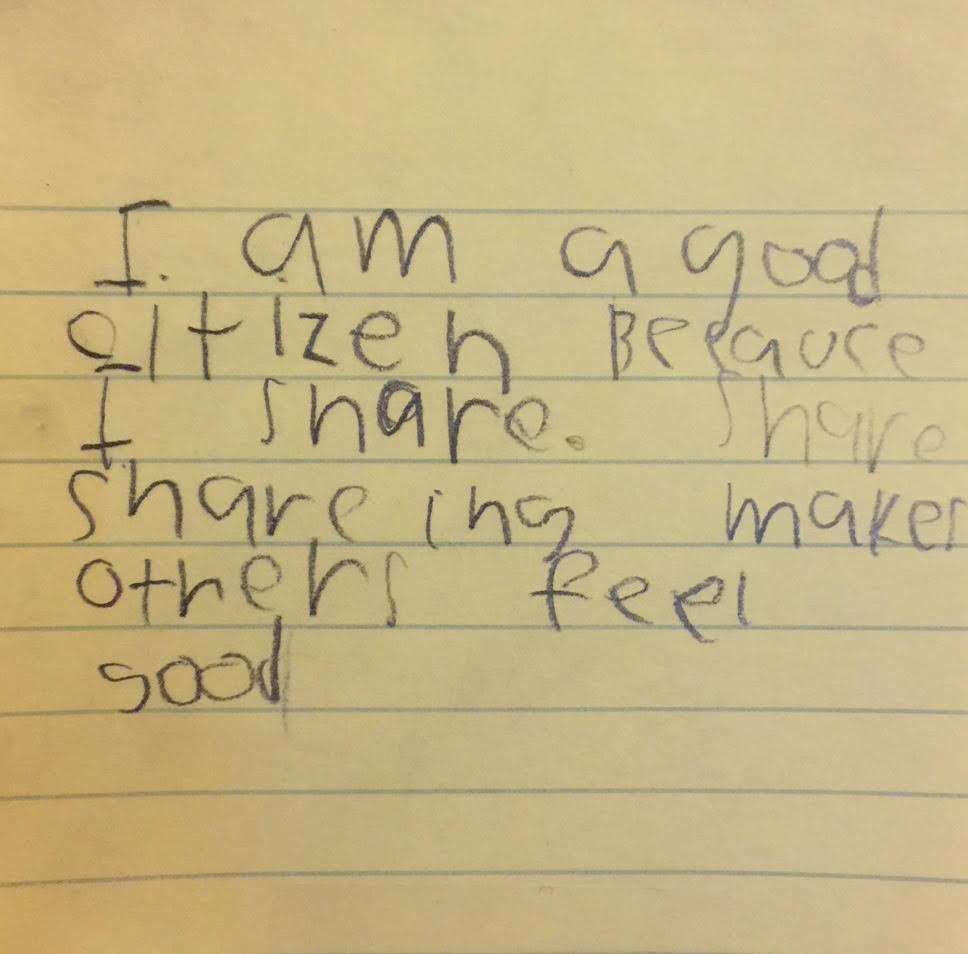 I am a good
citizen Because
I share. Share
shareing makes
others feel
good